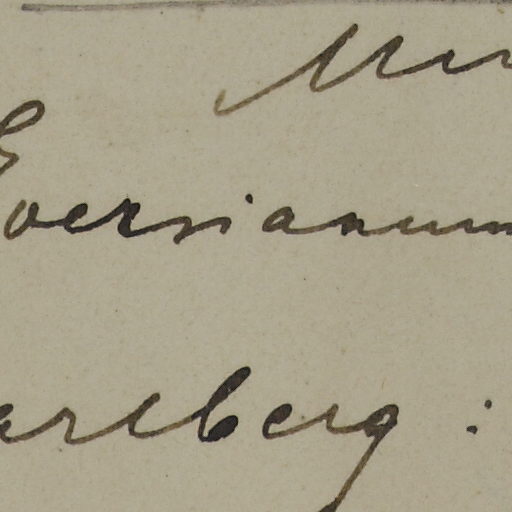 Mu
Eversianum
arlberg :